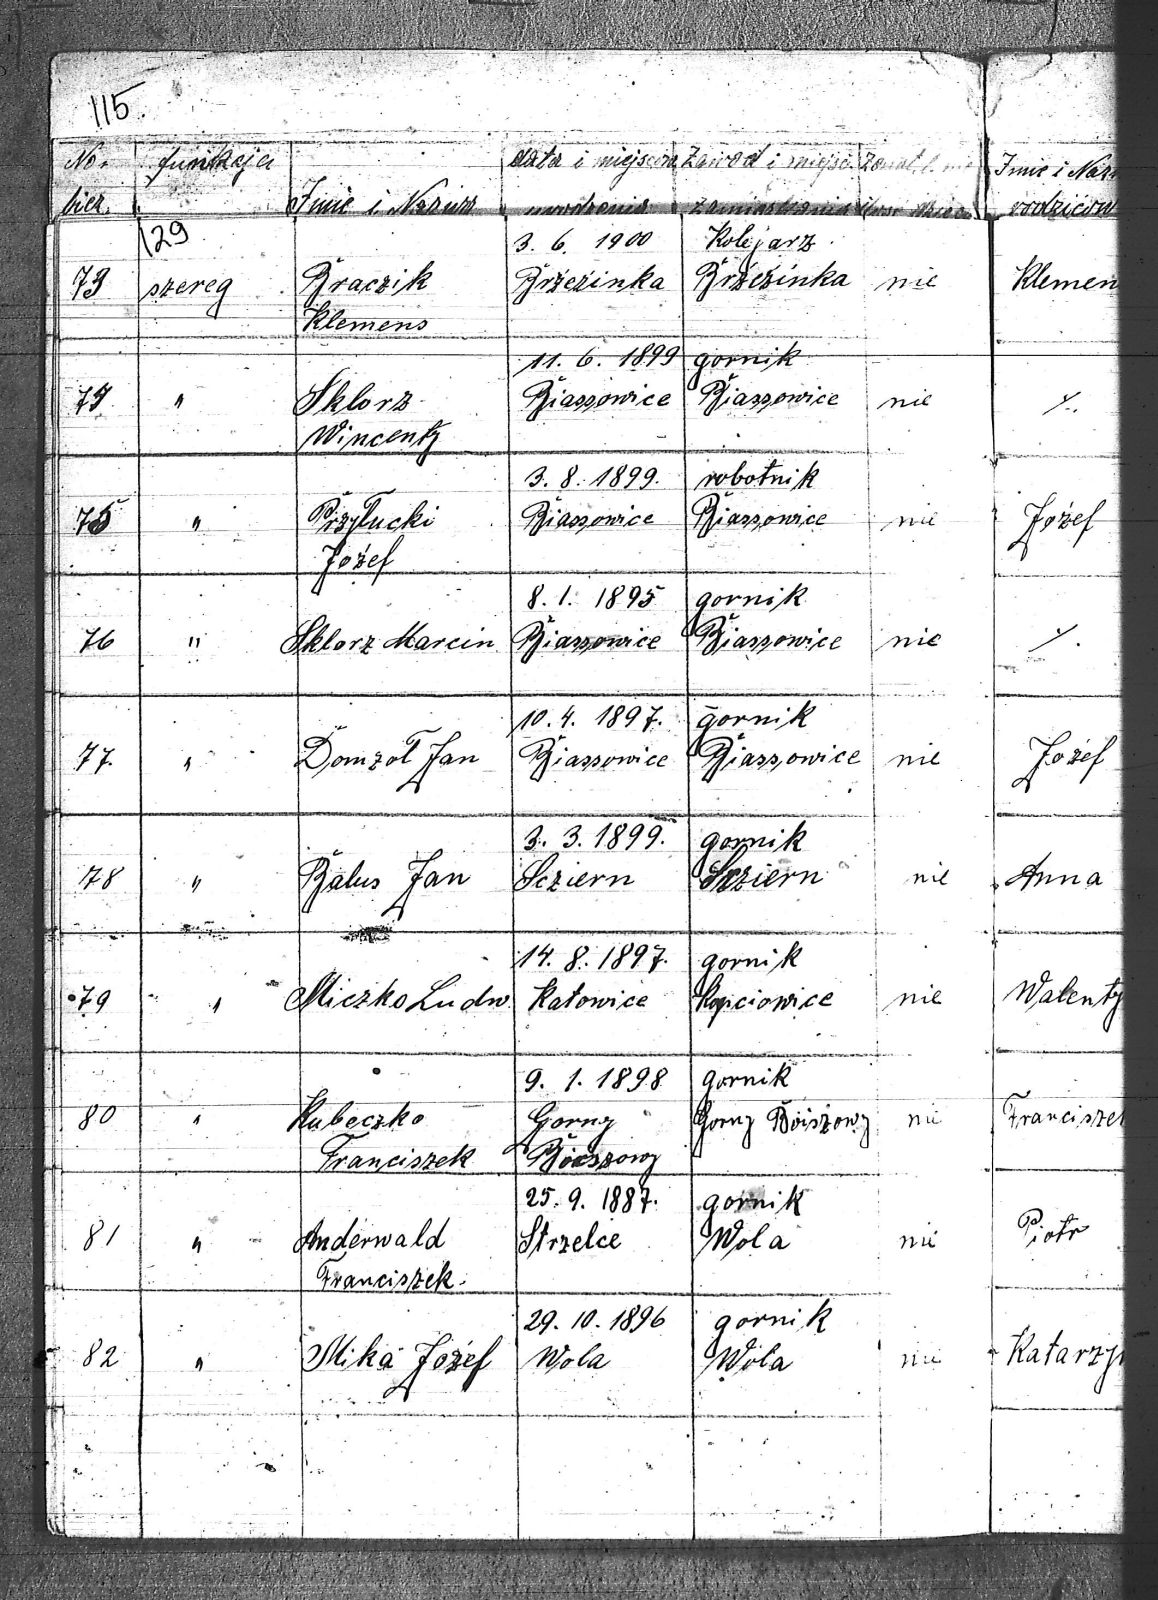 115.
No. funkcja data i miejscow Zawod i miejsc Zonat, l. Imie i Naz
biez. Imie i Nazwis urodzenia zamieszkania ilosc dzieci rodzicow
129 3. 6. 1900 Kolejarz
73 szereg Braczik Brzezinka Brzezinka nie Klemen
Klemens
11. 6. 1899 gornik
74 " Sklorz Biassowice Biassowice nie ⁒
Wincenty
3. 8. 1899. robotnik
75 " Przytucki Biassowice Biassowice nie Józef
Józef
8. 1. 1895 gornik
76 " Sklorz Marcin Biassowice Biassowice nie ⁒
10. 4. 1897. gornik
77. " Domzoł Jan Biassowice Biassowice nie Józef
3. 3. 1899. gornik
78 " Balus Jan Scziern Scziern nie Anna
14. 8. 1897. gornik
79 " Miczko Ludw. Katowice Kopciowice nie Walenty
9. 1. 1898 gornik
80 " Kubeczko Gorny Gorny Boiszowy nie Franciszek
Franciszek Boiszowy
25. 9. 1887. gornik
81 " Anderwald Strzelce Wola nie Piotr
Franciszek.
29. 10. 1896 gornik
82 " Mika Józef Wola Wola nie Katarzy